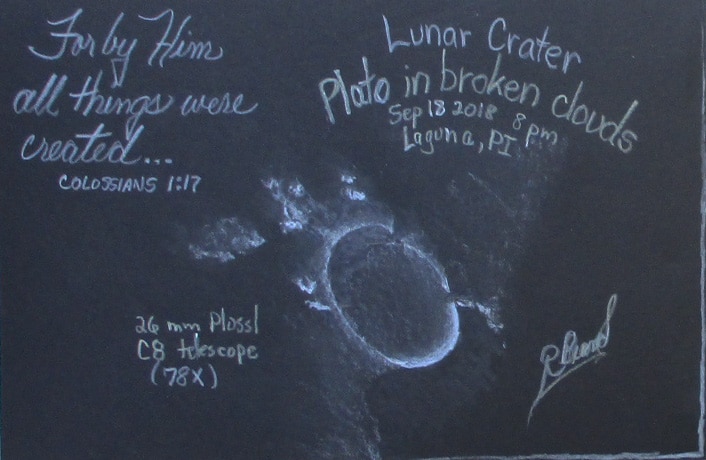 For by Him
all things were
created...
COLOSSIANS 1:17
Lunar Crater
Plato in broken clouds
Sep 18 2018 8 pm
Laguna, PI
26 mm Plossl
C8 telescope
(78X)